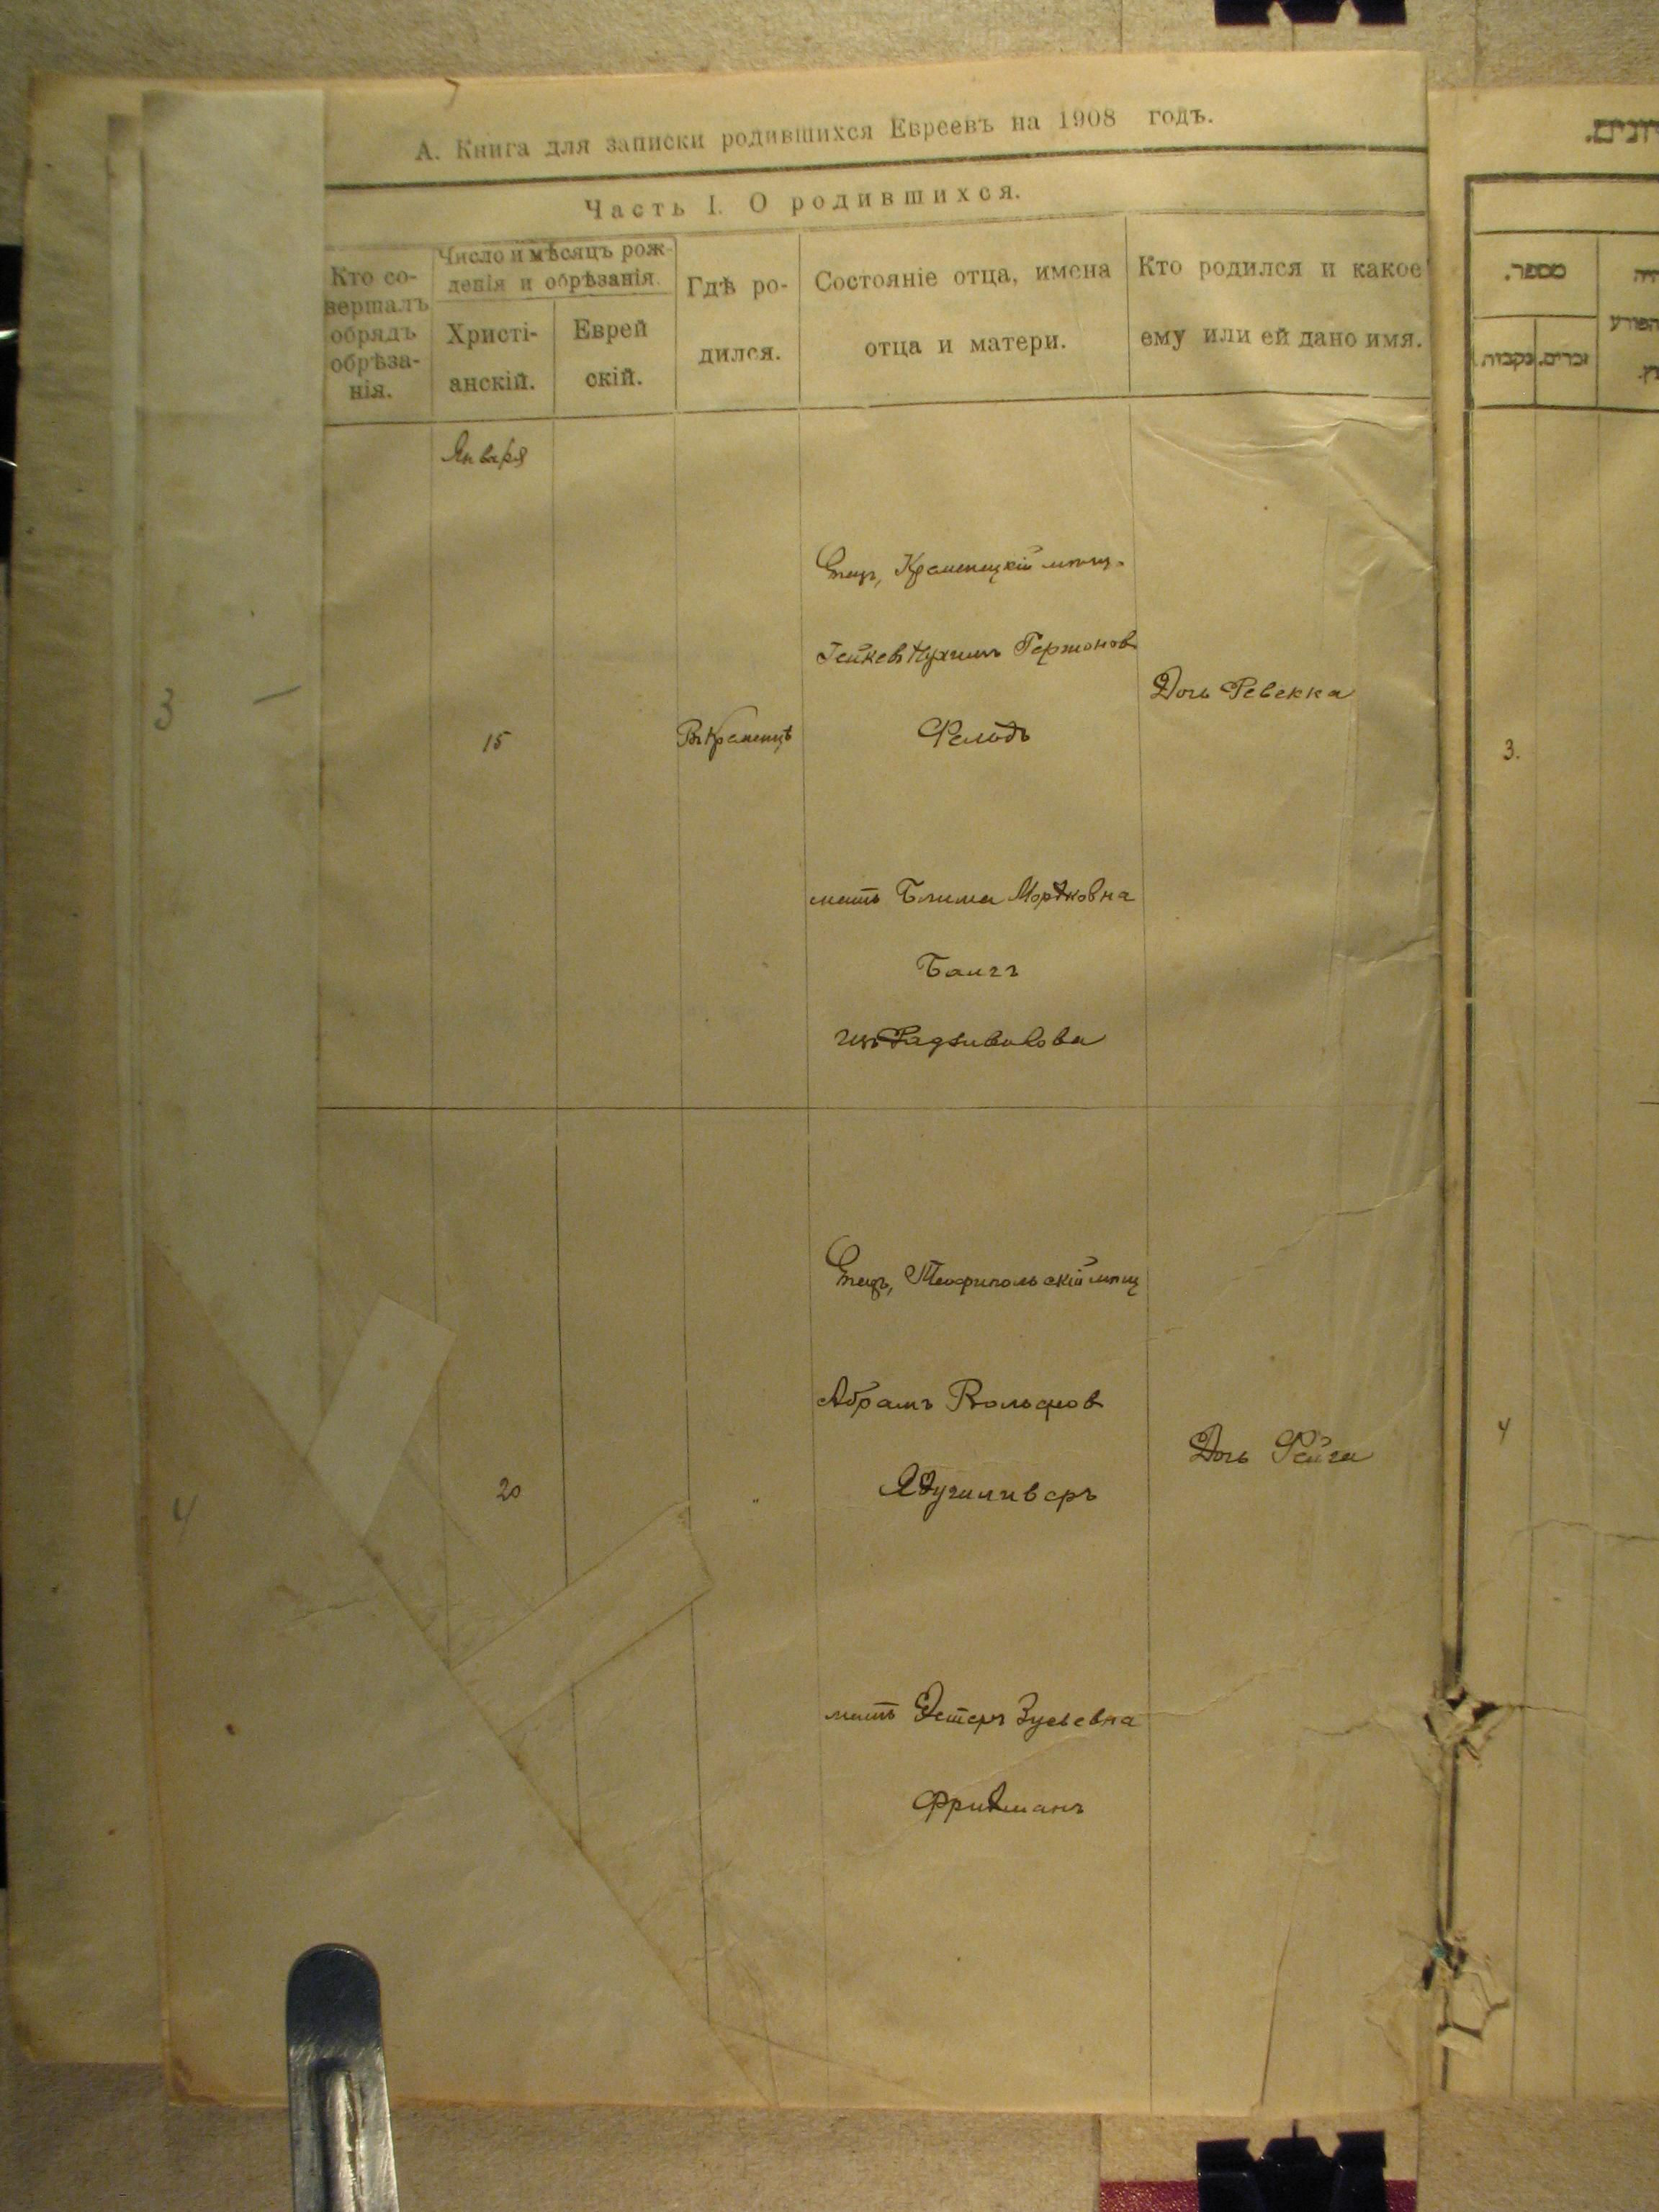 А. Книга для записки родившихся Евреевъ на 1908 годъ.
Часть I. О родившихся.
Кто со-
вершалъ
обрядъ
обрѣза-
нія.
Число и мѣсяцъ рож-
денія и обрѣзанія.
Христі-
анскій.
Еврей
скій.
Гдѣ ро-
дился.
Состояніе отца, имена
отца и матери.
Кто родился и какое
ему или ей дано имя.
Января
3
15
Въ Кременцѣ
Отецъ, Кременецкій мѣщ.
Нухимъ Гершонов
Фельдъ
мать Блима Мордковна
Дочь Ревекка
4
20
"
Отецъ, Теофипольскій мѣщ
Абрамъ Вольфов
мать Эстеръ Зусьевна
Фридманъ
Дочь Фейга
מספר.
זכרים.
נקבות
3.
4